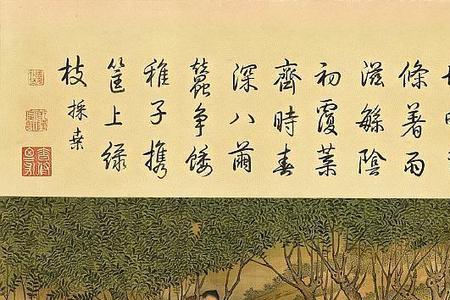 條著雨
滋緐陰
初覆葉
齊時春
深八繭
蠶爭餧
稚子攜
筐上綠
枝採桑